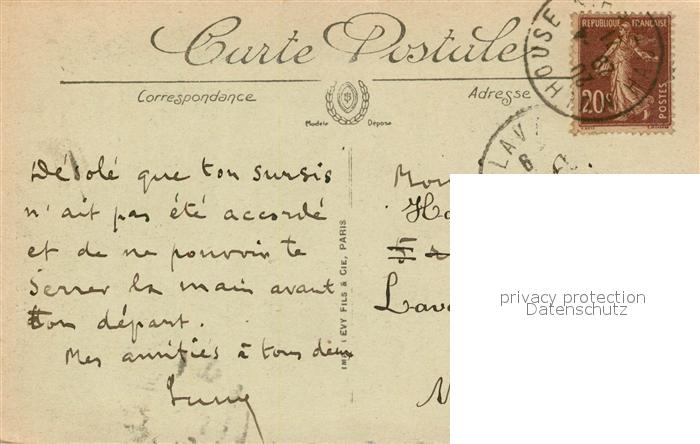 Carte Postale
Correspondance
Adresse
Modèle Déposé
REPUBLIQUE FRANÇAISE
20c
POSTES
HOUSE
LAV
Désolé que ton sursis
n'ait pas été accordé
et de ne pouvoir te
serrer la main avant
ton départ.
Mes amitiés à tous deux
IMP. LEVY FILS & CIE, PARIS
privacy protection
Datenschutz